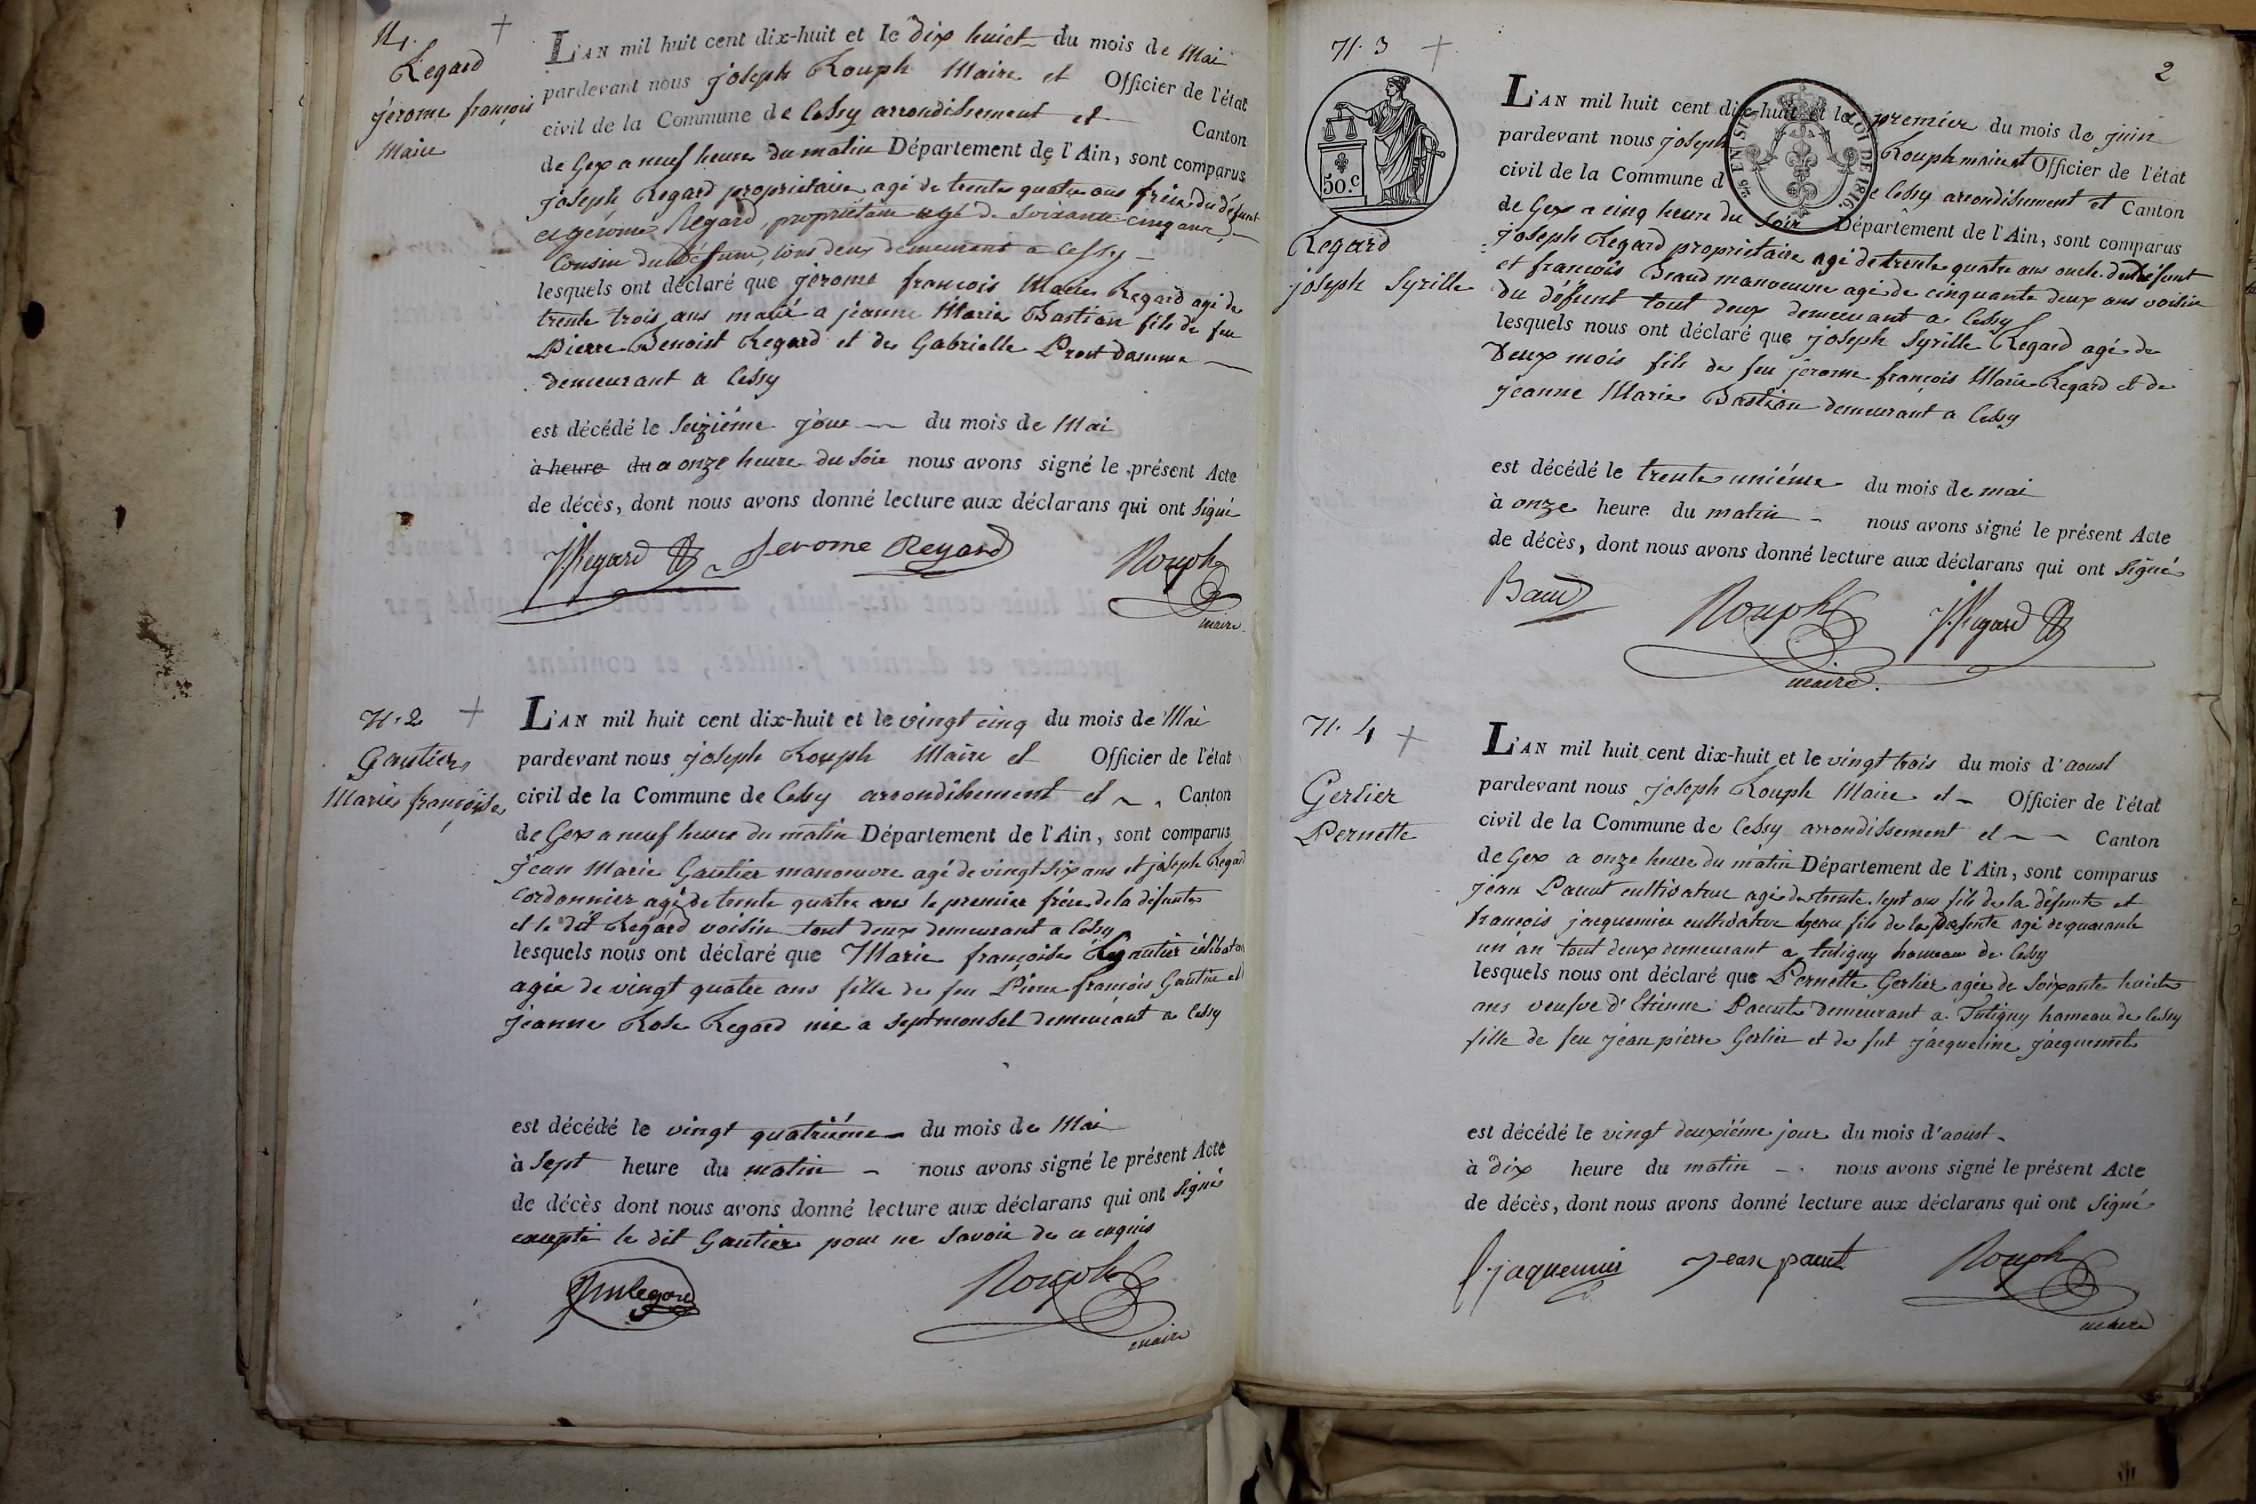 N 1.
Regard
jérome françois
Marie
L'AN mil huit cent dix-huit et le dix huict du mois de Mai
pardevant nous joseph Rouph Maire et Officier de l'état
civil de la Commune de Cessy arrondissement et Canton
de Gex a neuf heure du matin Département de l'Ain, sont comparus
joseph Regard proprietaire agé de trente quatre ans frère du défunt
et jérôme Regard, propriétaire agé de soixante cinq ans,
Cousin du défunt, tous deux demeurant a Cessy
lesquels ont déclaré que jérome françois Marie Regard agé de
trente trois ans marié a jeanne Maria Bastian fils de feu
Pierre Benoist Regard et de Gabrielle Prost Damme
demeurant a Cessy
est décédé le seiziéme jour du mois de Mai
à heure du a onze heure du soir nous avons signé le présent Acte
de décès, dont nous avons donné lecture aux déclarans qui ont signé
J Regard Jerome Regard Rouph
maire
N. 2
Gautier
Marie françoise
L'AN mil huit cent dix-huit et le vingt cinq du mois de Mai
pardevant nous joseph Rouph Maire et Officier de l'état
civil de la Commune de Cessy arrondissement et Canton
de Gex a neuf heure du matin Département de l'Ain, sont comparus
jean Marie Gautier manoeuvre agé de vingt six ans et joseph Regard
cordonnier agé de trente quatre ans le premier frère de la défunte
et le dit Regard voisin tout deux demeurant a Cessy
lesquels nous ont déclaré que Marie françoise Gautier célibataire
agée de vingt quatre ans fille de feu Pierre françois Gautier et
jeanne Rose Regard née a septmonsel demeurant a Cessy
est décédé le vingt quatriéme du mois de Mai
à sept heure du matin nous avons signé le présent Acte
de décès dont nous avons donné lecture aux déclarans qui ont signés
excepté le dit Gautier pour ne savoir de ce enquis
Regard Rouph
maire
N. 3
2
50.c
LOI DE 1816
Regard
joseph Syrille
L'AN mil huit cent dix-huit et le premier du mois de juin
pardevant nous joseph Rouph maire et Officier de l'état
civil de la Commune de Cessy arrondissement et Canton
de Gex a cinq heure du soir Département de l'Ain, sont comparus
joseph Regard proprietaire agé de trente quatre ans oncle du défunt
et françois Beaud manoeuvre agé de cinquante deux ans voisin
du défunt tout deux demeurant a Cessy
lesquels nous ont déclaré que joseph Syrille Regard agé de
deux mois fils de feu jérome françois Marie Regard et de
jeanne Marie Bastian demeurant a Cessy
est décédé le trente uniéme du mois de mai
à onze heure du matin nous avons signé le présent Acte
de décès, dont nous avons donné lecture aux déclarans qui ont signés
Baud Rouph J Regard
maire.
N. 4
Gerlier
Pernette
L'AN mil huit cent dix-huit et le vingt trois du mois d'aoust
pardevant nous joseph Rouph Maire et Officier de l'état
civil de la Commune de Cessy arrondissement et Canton
de Gex a onze heure du matin Département de l'Ain, sont comparus
jean Paccut cultivateur agé de trente sept ans fils de la défunte et
françois jacquemier cultivateur beau fils de la défunte agé de quarante
un an tout deux demeurant a tutigny hameau de Cessy
lesquels nous ont déclaré que Pernette Gerlier agée de soixante huict
ans veufve d'Etienne Paccut demeurant a Tutigny hameau de Cessy
fille de feu jean pierre Gerlier et de fut jacqueline jacquemet
est décédé le vingt deuxiéme jour du mois d'aoust
à dix heure du matin nous avons signé le présent Acte
de décès, dont nous avons donné lecture aux déclarans qui ont signé
f. jaquemier jean pacut Rouph
maire